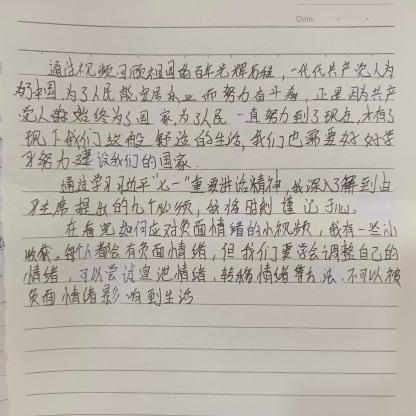 Date.
通过视频回顾祖国的百年光辉历程,一代代共产党人为
了中国,为了人民能安居乐业而努力奋斗着,正是因为共产
党人始终为了国家,为了人民一直努力到了现在,才有了
现下我们这般舒适的生活,我们也需要好好学
习努力建设我们的国家.
通过学习习近平"七一"重要讲话精神,我深入了解到由
习主席提出的九个必须,我将时刻谨记于心.
在看完如何应对负面情绪的小视频,我有一些小
收获.每个人都会有负面情绪,但我们要学会调整自己的
情绪,可以尝试宣泄情绪、转移情绪等方法.不可以被
负面情绪影响到生活